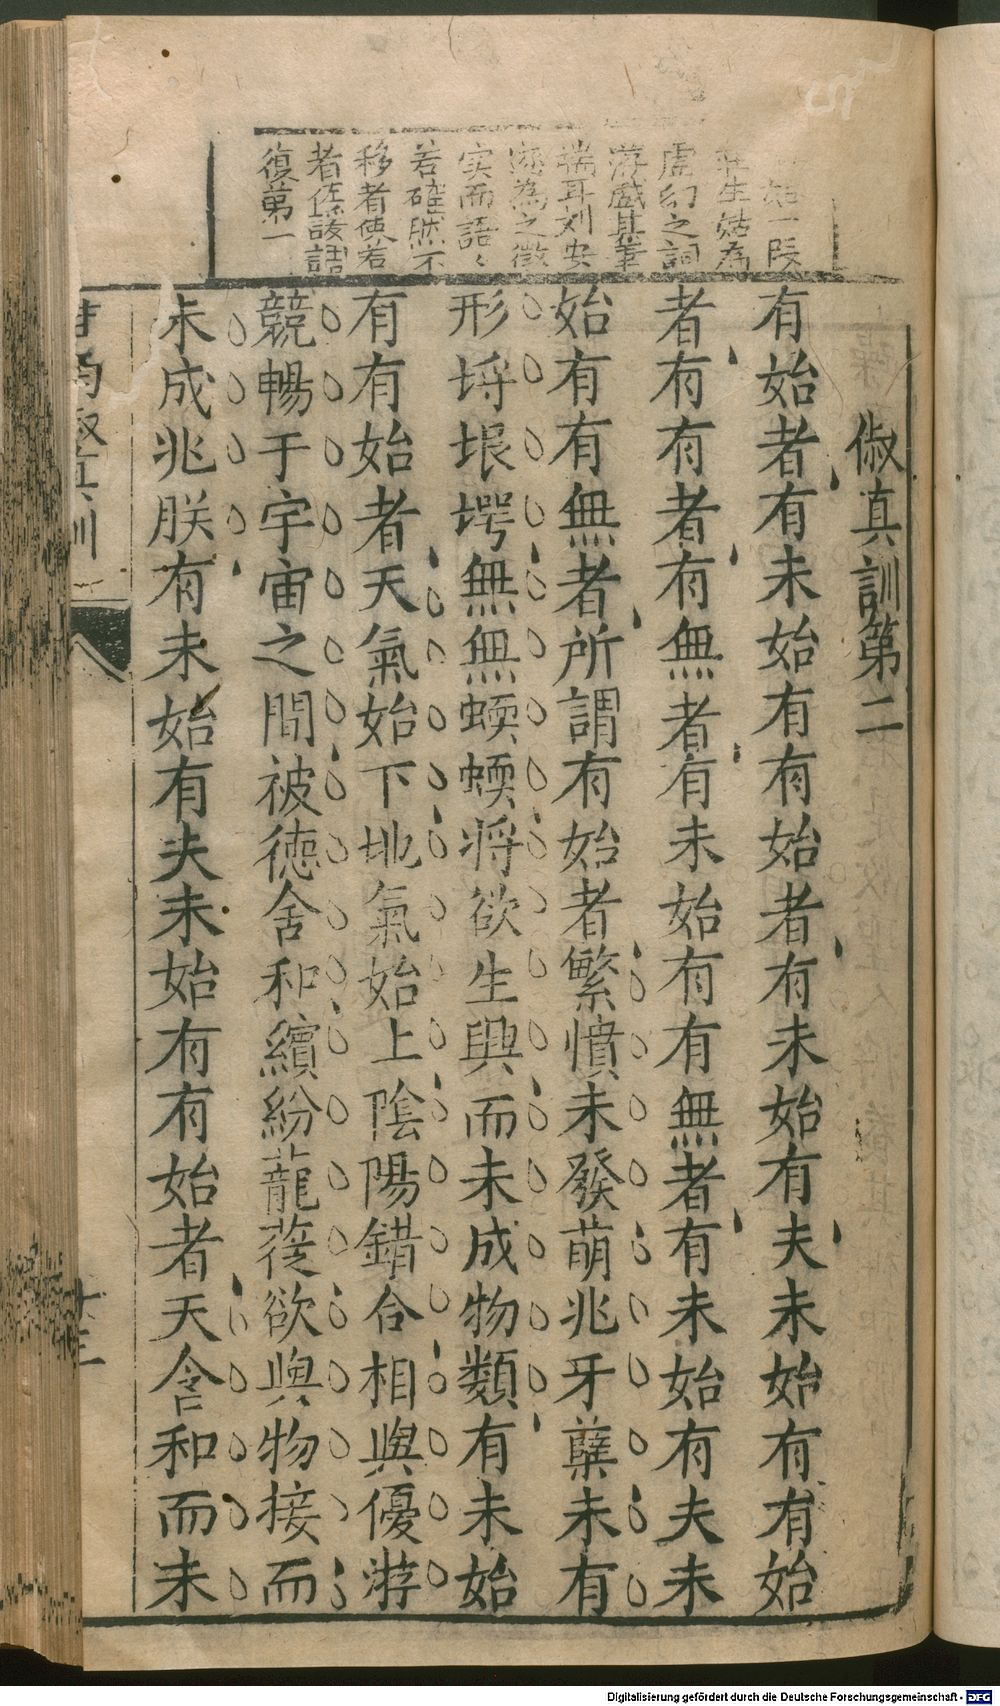 俶真訓第二
有始者有未始有有始者有未始有夫未始有有始
者有有者有無者有未始有有無者有未始有夫未
始有有無者所謂有始者繁憤未發萌兆牙蘖未有
形埒垠堮無無蝡蝡將欲生興而未成物類有未始
有有始者天氣始下地氣始上陰陽錯合相與優游
競暢于宇宙之間被德含和繽紛蘢蓯欲與物接而
未成兆朕有未始有夫未始有有始者天含和而未
始一段
生姑為
虛幻之詞
游戲其筆
端耳刘安
遂為之徵
实而語〻
若確然不
移者使若
者係該語
復第一
Digitalisierung gefördert durch die Deutsche Forschungsgemeinschaft - DFG